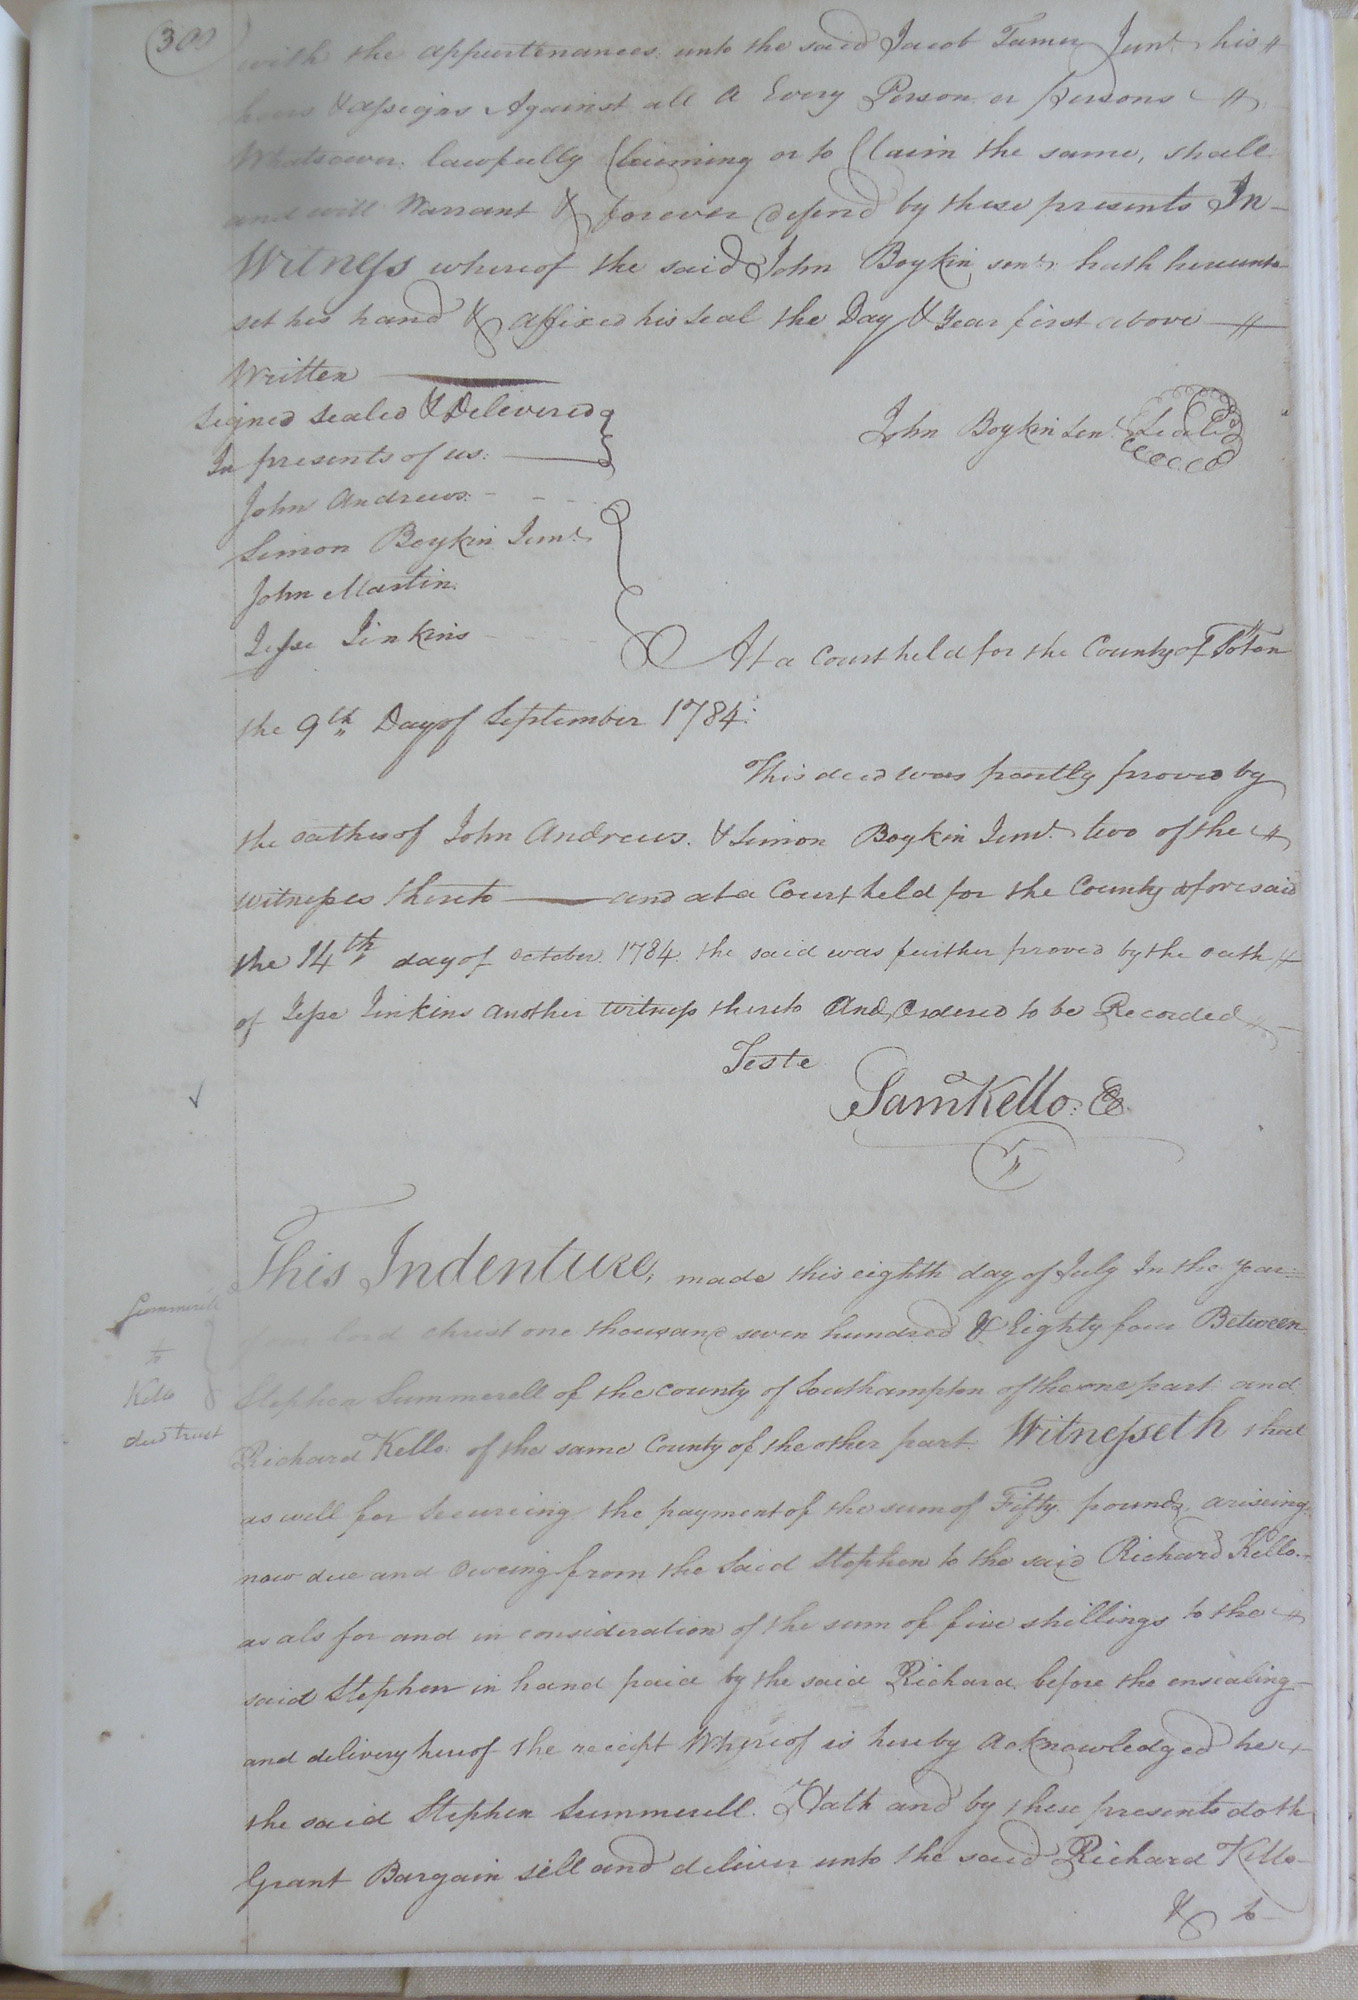 300
with the appurtenances unto the said Jacob Turner Junr. his
heirs & assigns Against all & Every Person or persons
Whatsoever lawfully Claiming or to Claim the same, shall
and will Warrant & forever defend by these presents In
Witness whereof the said John Boykin senr. hath hereunto
set his hand & affixed his seal the Day & Year first above
Written
Signed Sealed & Delivered
In presents of us.
John Boykin Senr. Seal
John Andrews.
Simon Boykin Junr.
John Martin.
Jesse Jinkins
At a Court held for the County of Soton
the 9th Day of September 1784.
This deed was partly proved by
the oathes of John Andrews. & Simon Boykin Junr. two of the
witnesses thereto and at a Court held for the County aforesaid
the 14th day of october. 1784. the said was further proved by the oath
of Jesse Jinkins another witness thereto And Ordered to be Recorded
Teste
Saml Kello. C
This Indenture, made this eighth day of July In the Year
christ one thousand seven hundred & Eighty four Between
Stephen Summerell of the county of Southampton of the one part and
Richard Kello of the same County of the other part Witnesseth that
as well for secureing the payment of the sum of Fifty pounds ariseing
now due and oweing from the Said Stephen to the said Richard Kello
as als for and in consideration of the sum of five shillings to the
said Stephen in hand paid by the said Richard before the ensealing
and delivery hereof the receipt Whereof is hereby acknowledged he
the said Stephen Summerell. Hath and by these presents doth
Grant Bargain sell and deliver unto the said Richard Kello
& to
Summerell
to
Kello
deed trust